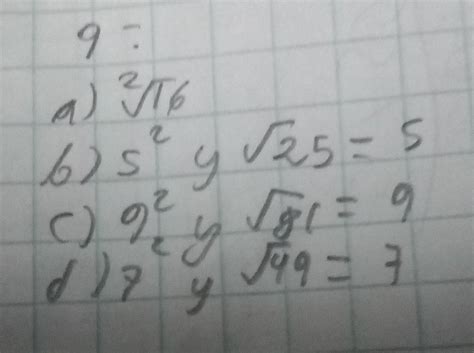 9:
a) ²√16
b) 5² y √25 = 5
c) 9² y √81 = 9
d) 7² y √49 = 7